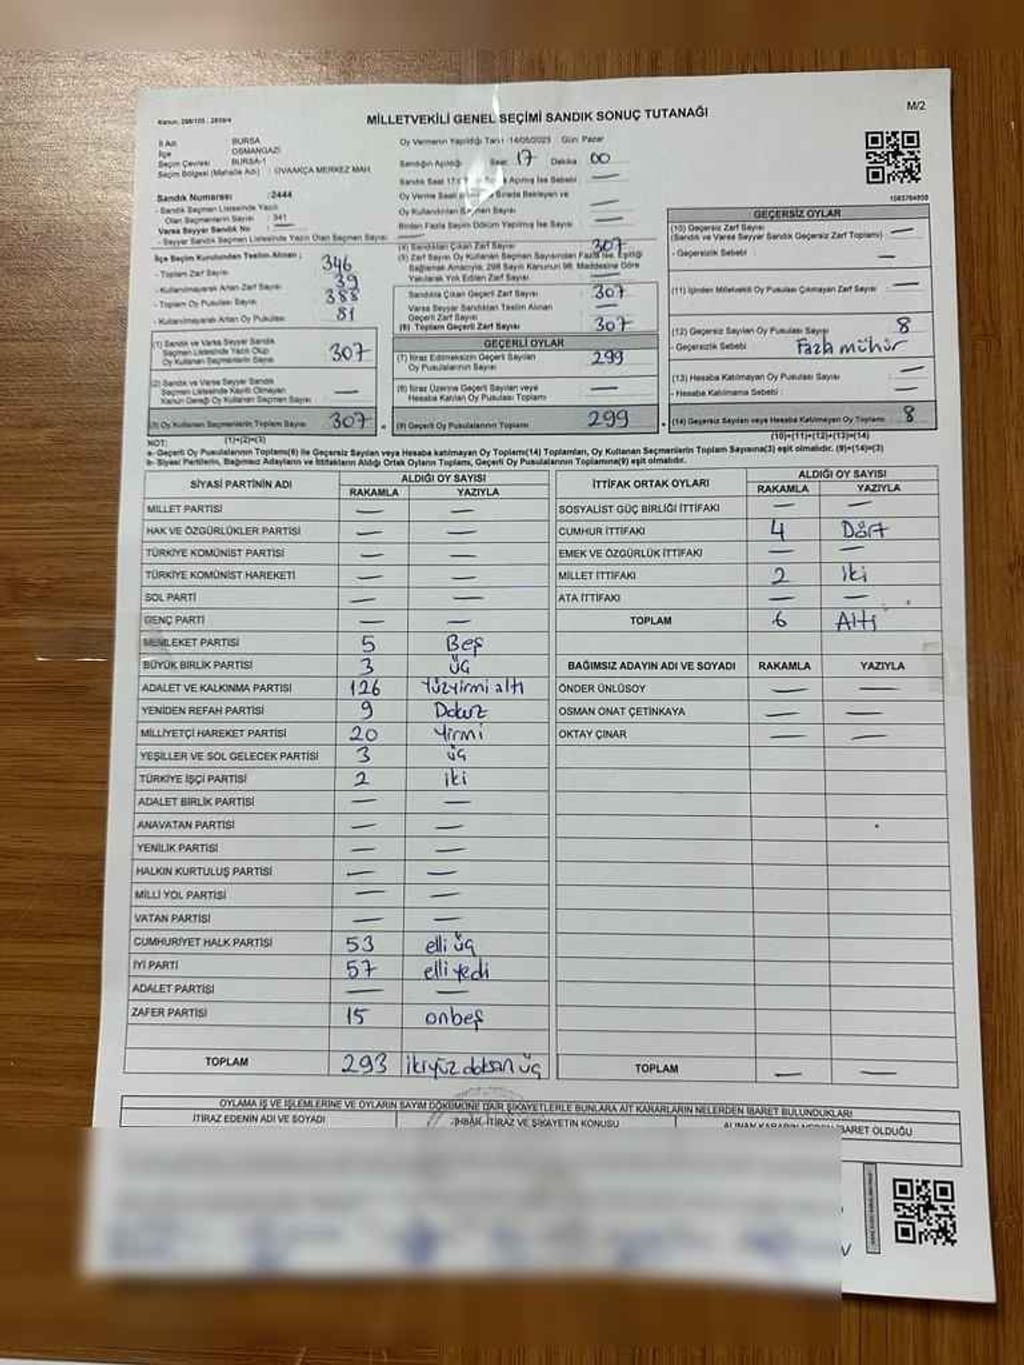 M/2
MİLLETVEKİLİ GENEL SEÇİMİ SANDIK SONUÇ TUTANAĞI
İli Adı : BURSA
İlçe : OSMANGAZİ
Seçim Çevresi : BURSA-1
Seçim Bölgesi (Mahalle Adı) : OVAAKÇA MERKEZ MAH.
Oy Vermenin Yapıldığı Tarih: 14/05/2023 Gün: Pazar
Sandığın Açıldığı Saat: 17 Dakika 00
Sandık Numarası : 2444
- Sandık Seçmen Listesinde Yazılı
Olan Seçmenlerin Sayısı : 341
Varsa Seyyar Sandık No —
- Seyyar Sandık Seçmen Listesinde Yazılı Olan Seçmen Sayısı —
İlçe Seçim Kurulundan Teslim Alınan ;
- Toplam Zarf Sayısı 346
- Kullanılmayarak Artan Zarf Sayısı 39
- Toplam Oy Pusulası Sayısı 388
- Kullanılmayarak Artan Oy Pusulası 81
(1) Sandık ve Varsa Seyyar Sandık
Seçmen Listesinde Yazılı Olup
Oy Kullanan Seçmenlerin Sayısı 307
(2) Sandık ve Varsa Seyyar Sandık
Seçmen Listesinde Kayıtlı Olmayan
Kanun Gereği Oy Kullanan Seçmen Sayısı —
(3) Oy Kullanan Seçmenlerin Toplam Sayısı 307
(1)+(2)=(3)
Oy Kullandırılan Seçmen Sayısı —
Birden Fazla Seçim Döküm Yapılmış İse Sayısı —
(4) Sandıktan Çıkan Zarf Sayısı 307
(5) Zarf Sayısı Oy Kullanan Seçmen Sayısından Fazla İse, Eşitliği
Sağlamak Amacıyla, 298 Sayılı Kanunun 98. Maddesine Göre
Yakılarak Yok Edilen Zarf Sayısı —
Sandıkta Çıkan Geçerli Zarf Sayısı 307
Varsa Seyyar Sandıktan Teslim Alınan
Geçerli Zarf Sayısı —
(6) Toplam Geçerli Zarf Sayısı 307
GEÇERLİ OYLAR
(7) İtiraz Edilmeksizin Geçerli Sayılan
Oy Pusulalarının Sayısı 299
(8) İtiraz Üzerine Geçerli Sayılan veya
Hesaba Katılan Oy Pusulası Toplamı —
(9) Geçerli Oy Pusulalarının Toplamı 299
1083784800
GEÇERSİZ OYLAR
(10) Geçersiz Zarf Sayısı —
(Sandık ve Varsa Seyyar Sandık Geçersiz Zarf Toplamı)
- Geçersizlik Sebebi: —
(11) İçinden Milletvekili Oy Pusulası Çıkmayan Zarf Sayısı —
(12) Geçersiz Sayılan Oy Pusulası Sayısı 8
- Geçersizlik Sebebi Fazla mühür
(13) Hesaba Katılmayan Oy Pusulası Sayısı —
- Hesaba Katılmama Sebebi : —
(14) Geçersiz Sayılan veya Hesaba Katılmayan Oy Toplamı 8
(10)+(11)+(12)+(13)=(14)
NOT:
a- Geçerli Oy Pusulalarının Toplamı(9) ile Geçersiz Sayılan veya Hesaba katılmayan Oy Toplamı(14) Toplamları, Oy Kullanan Seçmenlerin Toplam Sayısına(3) eşit olmalıdır. (9)+(14)=(3)
b- Siyasi Partilerin, Bağımsız Adayların ve İttifakların Aldığı Ortak Oyların Toplamı, Geçerli Oy Pusulalarının Toplamına(9) eşit olmalıdır.
SİYASİ PARTİNİN ADI ALDIĞI OY SAYISI
RAKAMLA YAZIYLA
MİLLET PARTİSİ — —
HAK VE ÖZGÜRLÜKLER PARTİSİ — —
TÜRKİYE KOMÜNİST PARTİSİ — —
TÜRKİYE KOMÜNİST HAREKETİ — —
SOL PARTİ — —
GENÇ PARTİ — —
MEMLEKET PARTİSİ 5 Beş
BÜYÜK BİRLİK PARTİSİ 3 üç
ADALET VE KALKINMA PARTİSİ 126 Yüzyirmi altı
YENİDEN REFAH PARTİSİ 9 Dokuz
MİLLİYETÇİ HAREKET PARTİSİ 20 Yirmi
YEŞİLLER VE SOL GELECEK PARTİSİ 3 üç
TÜRKİYE İŞÇİ PARTİSİ 2 iki
ADALET BİRLİK PARTİSİ — —
ANAVATAN PARTİSİ — —
YENİLİK PARTİSİ — —
HALKIN KURTULUŞ PARTİSİ — —
MİLLİ YOL PARTİSİ — —
VATAN PARTİSİ — —
CUMHURİYET HALK PARTİSİ 53 elli üç
İYİ PARTİ 57 elli yedi
ADALET PARTİSİ — —
ZAFER PARTİSİ 15 onbeş
TOPLAM 293 ikiyüz doksan üç
İTTİFAK ORTAK OYLARI ALDIĞI OY SAYISI
RAKAMLA YAZIYLA
SOSYALİST GÜÇ BİRLİĞİ İTTİFAKI — —
CUMHUR İTTİFAKI 4 Dört
EMEK VE ÖZGÜRLÜK İTTİFAKI — —
MİLLET İTTİFAKI 2 iki
ATA İTTİFAKI — —
TOPLAM 6 Altı
BAĞIMSIZ ADAYIN ADI VE SOYADI RAKAMLA YAZIYLA
ÖNDER ÜNLÜSOY — —
OSMAN ONAT ÇETİNKAYA — —
OKTAY ÇINAR — —
TOPLAM — —
OYLAMA İŞ VE İŞLEMLERİNE VE OYLARIN SAYIM DÖKÜMÜNE DAİR ŞİKAYETLERLE BUNLARA AİT KARARLARIN NELERDEN İBARET BULUNDUKLARI
İTİRAZ EDENİN ADI VE SOYADI İHBAR, İTİRAZ VE ŞİKAYETİN KONUSU ALINAN KARARIN NEDEN İBARET OLDUĞU